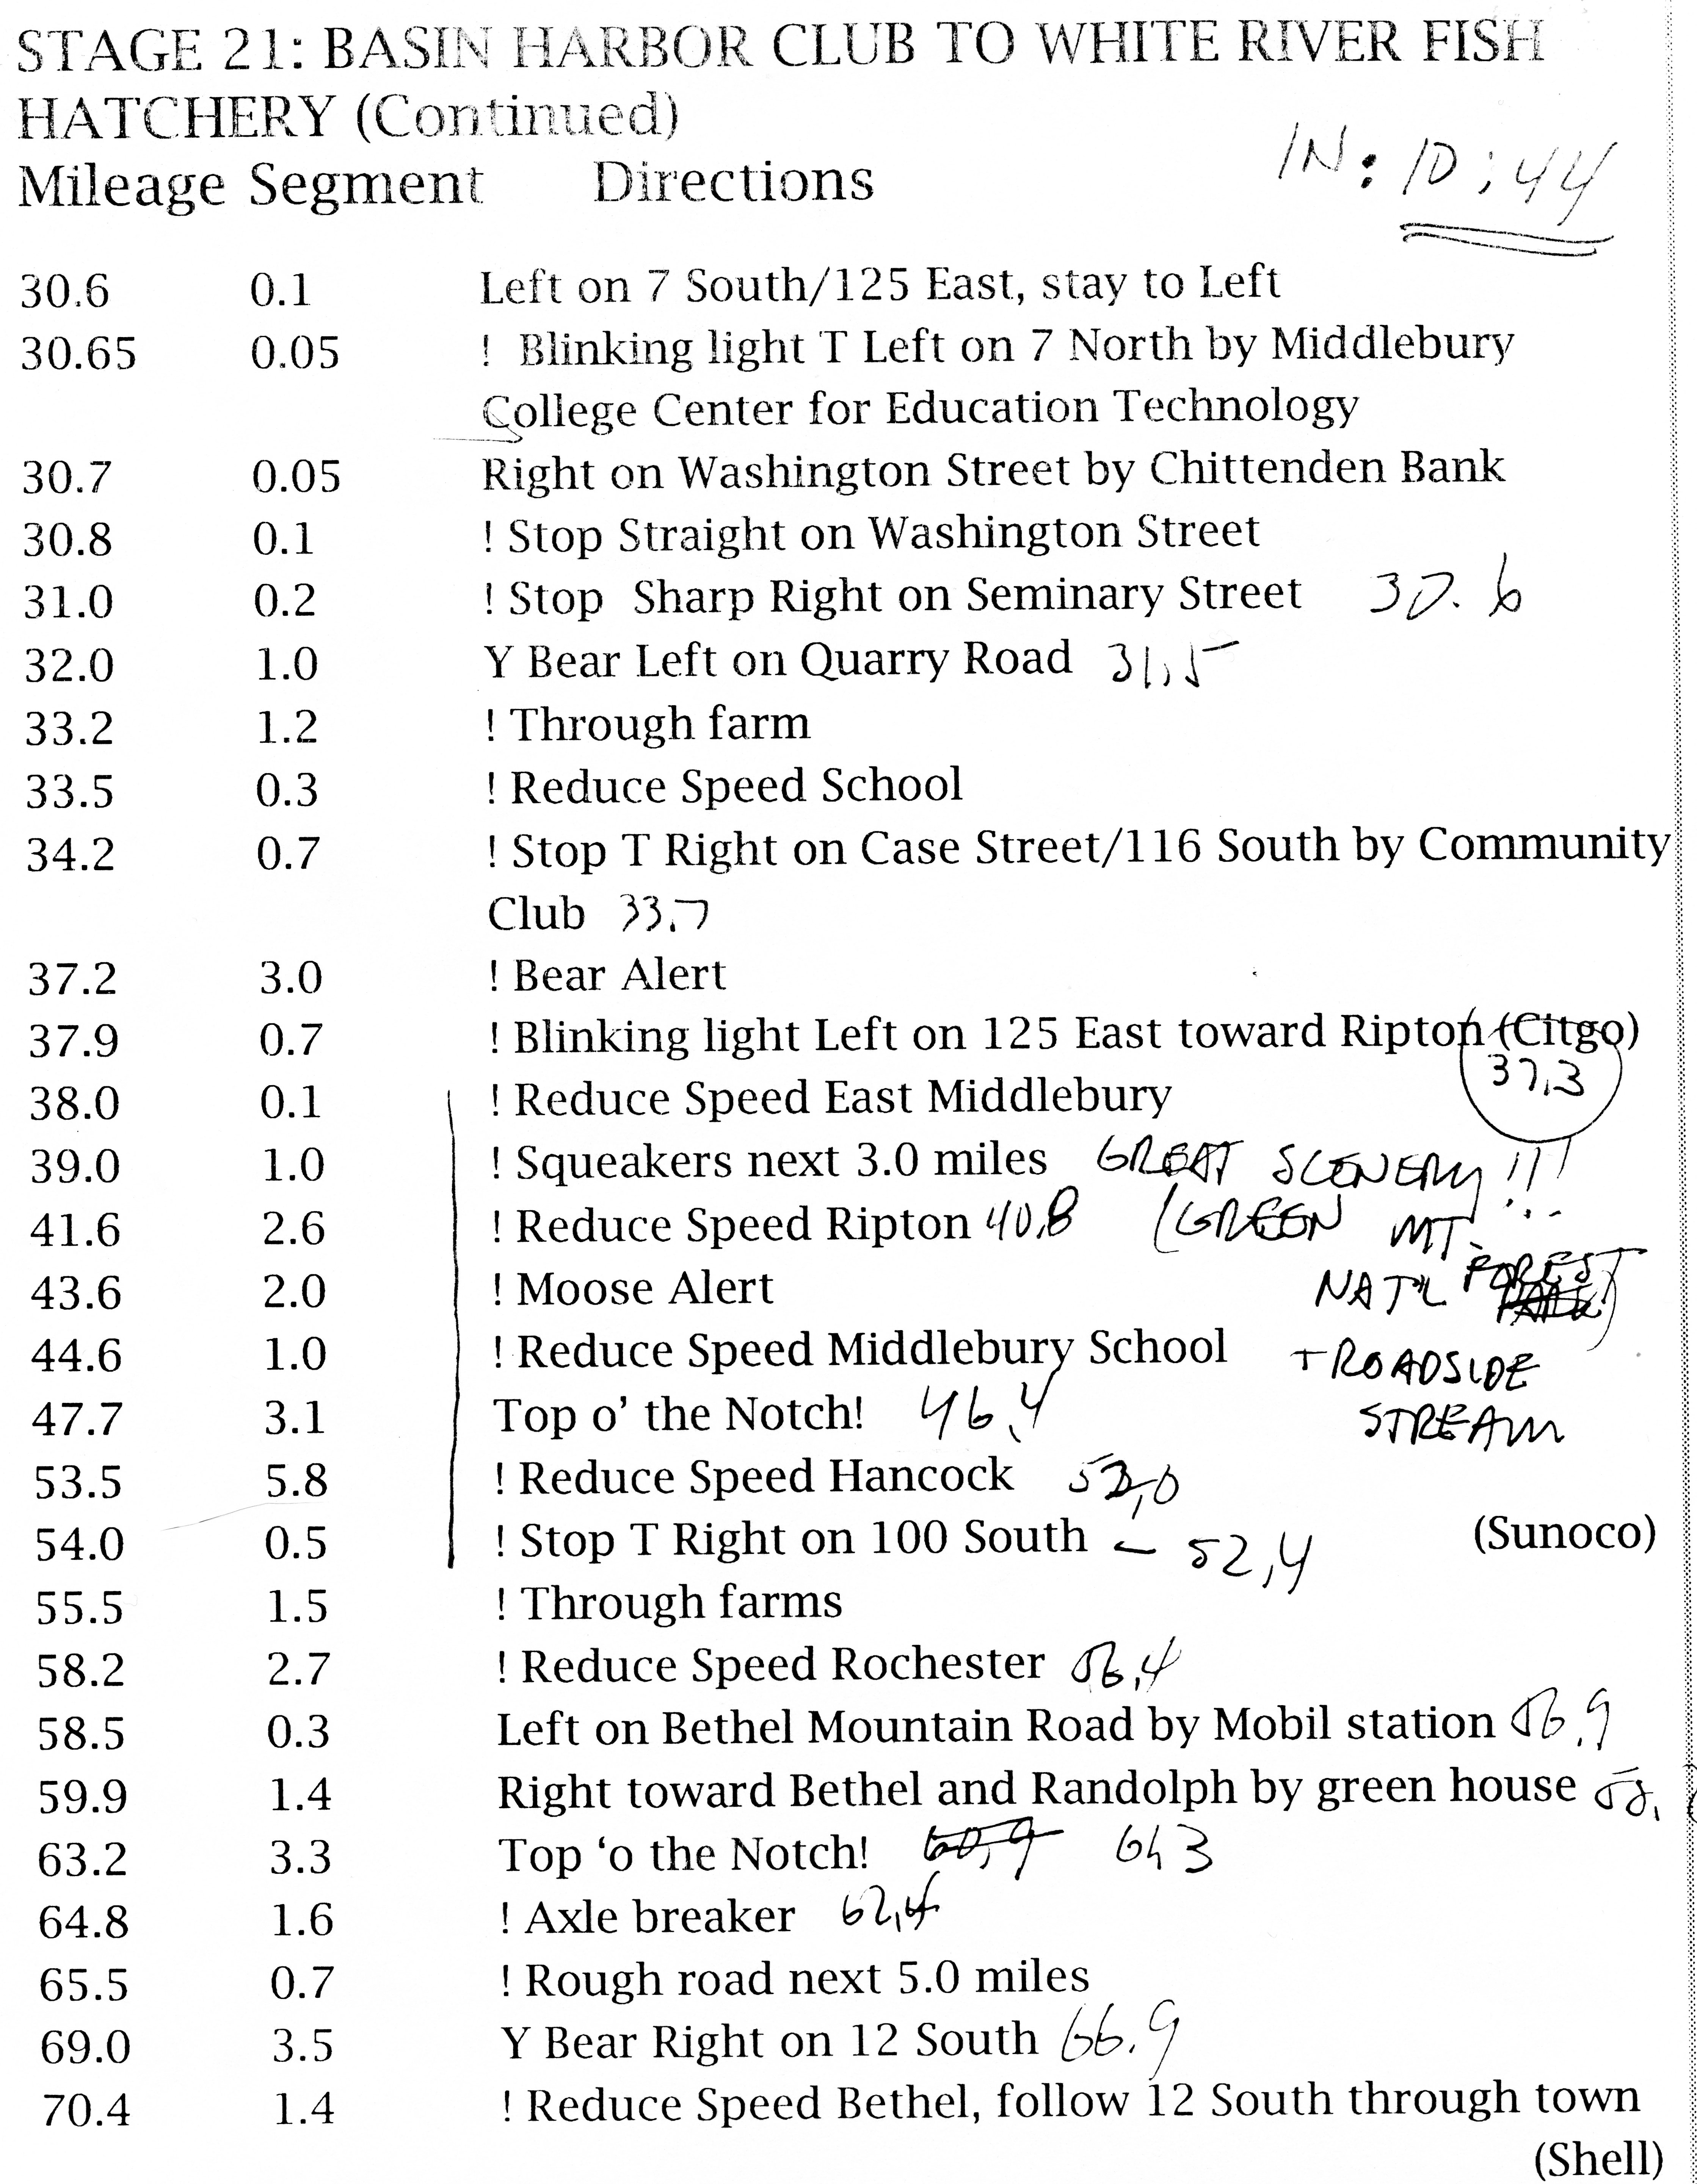 STAGE 21: BASIN HARBOR CLUB TO WHITE RIVER FISH
HATCHERY (Continued)
IN: 10:44
Mileage Segment Directions
30.6 0.1 Left on 7 South/125 East, stay to Left
30.65 0.05 ! Blinking light T Left on 7 North by Middlebury
College Center for Education Technology
30.7 0.05 Right on Washington Street by Chittenden Bank
30.8 0.1 ! Stop Straight on Washington Street
31.0 0.2 ! Stop Sharp Right on Seminary Street 30.6
32.0 1.0 Y Bear Left on Quarry Road 31,5
33.2 1.2 ! Through farm
33.5 0.3 ! Reduce Speed School
34.2 0.7 ! Stop T Right on Case Street/116 South by Community
Club 33.7
37.2 3.0 ! Bear Alert
37.9 0.7 ! Blinking light Left on 125 East toward Ripton (Citgo)
37.3
38.0 0.1 ! Reduce Speed East Middlebury
39.0 1.0 ! Squeakers next 3.0 miles GREAT SCENERY!!!
41.6 2.6 ! Reduce Speed Ripton 40.8 (GREEN MT.
43.6 2.0 ! Moose Alert NAT'L FOREST)
44.6 1.0 ! Reduce Speed Middlebury School + ROADSIDE
47.7 3.1 Top o' the Notch! 46.4 STREAM
53.5 5.8 ! Reduce Speed Hancock 52,0
54.0 0.5 ! Stop T Right on 100 South – 52,4 (Sunoco)
55.5 1.5 ! Through farms
58.2 2.7 ! Reduce Speed Rochester 56,4
58.5 0.3 Left on Bethel Mountain Road by Mobil station 56.9
59.9 1.4 Right toward Bethel and Randolph by green house 58.
63.2 3.3 Top 'o the Notch! 60,9 61,3
64.8 1.6 ! Axle breaker 62,4
65.5 0.7 ! Rough road next 5.0 miles
69.0 3.5 Y Bear Right on 12 South 66.9
70.4 1.4 ! Reduce Speed Bethel, follow 12 South through town
(Shell)